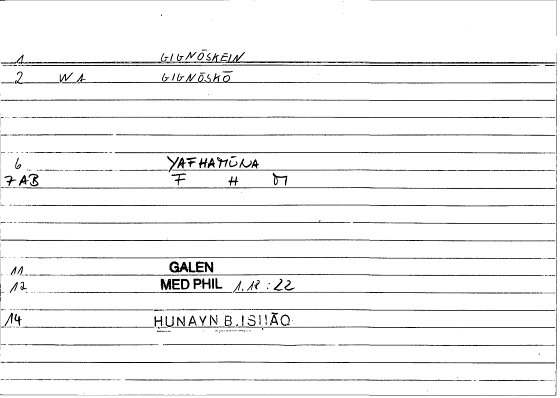 1 GIGNŌSKEIN
2 W A GIGNŌSKŌ
6 YAFHAMŪNA
7 AB F H M
11 GALEN
12 MED PHIL 1,18 : 22
14 HUNAYN B. ISḤĀQ